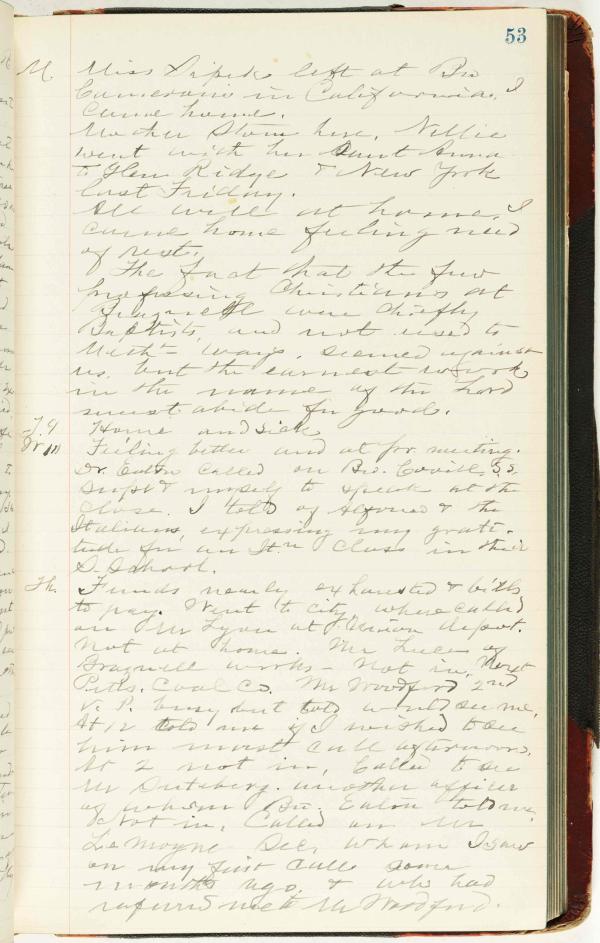 53
M. Miss Dipeks left at Bro
Camerons in California. I
came home.
Mother Stone here. Nellie
went with her Aunt Anna
to Glen Ridge & New York
last Friday.
All well at home. I
came home feeling need
of rest.
The fact that the few
professing Christians at
Bragnell were chiefly
Baptists, and not used to
Meth- ways, seemed against
us, but the earnest work
in the name of the Lord
must abide for good.
Home and sick
Feeling better and at for meeting.
Dr. Eaton called on Bro. Covill, S.S.
Supt & myself to speak at the
close. I told of & the
Italians, expressing my grati-
tude for an Itn Class in their
S. School.
Th. Funds nearly exhausted & bills
to pay. Went to city, where called
on Mr Lyon at Union depot.
Not at home. Mr Luce of
Bragnell works - Not in. Next
Pitts. Coal Co. Mr Woodford 2nd
V. P. busy but told would see me.
At 12 told me if I wished to see
him must call afternoon.
At 2 not in, Called to see
Mr another officer
of whom Bro. Eaton told me.
Not in. Called on Mr
LeMoyne Sec, whom I saw
on my first call some
months ago, & who had
referred me to Mr Woodford.